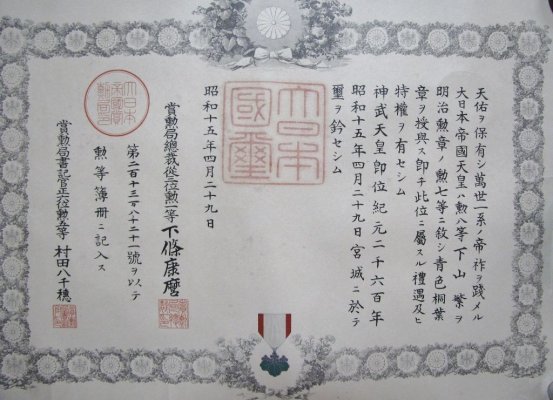 天佑ヲ保有シ萬世一系ノ帝祚ヲ踐メル
大日本帝國天皇ハ勲八等下山繁ヲ
明治勲章ノ勲七等ニ敘シ青色桐葉
章ヲ授與ス即チ此位ニ屬スル禮遇及ヒ
特權ヲ有セシム
神武天皇即位紀元二千六百年
昭和十五年四月二十九日宮城ニ於テ
璽ヲ鈐セシム
大日本
國璽
昭和十五年四月二十九日
賞勲局總裁從三位勲一等下條康麿
第二百十三万八千二十一號ヲ以テ
勲等簿冊ニ記入ス
賞勲局書記官正六位勲五等村田八千穂